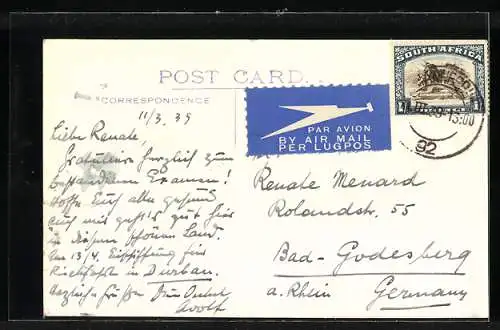 POST CARD.
CORRESPONDENCE
11/3.39
Liebe Renate.
Gratuliere herzlich zum
bestandenen Examen!
Hoffe Euch allen gesund
auch mir geht's gut hier
in diesem schönen Land.
Am 13/4. Einschiffung für
Rückfahrt in Durban.
Herzliche Grüße Dein Onkel
Adolf
PAR AVION
BY AIR MAIL
PER LUGPOS
SOUTH AFRICA
13:00
92
Renate Menard
Rolandstr. 55
Bad-Godesberg
a. Rhein Germany